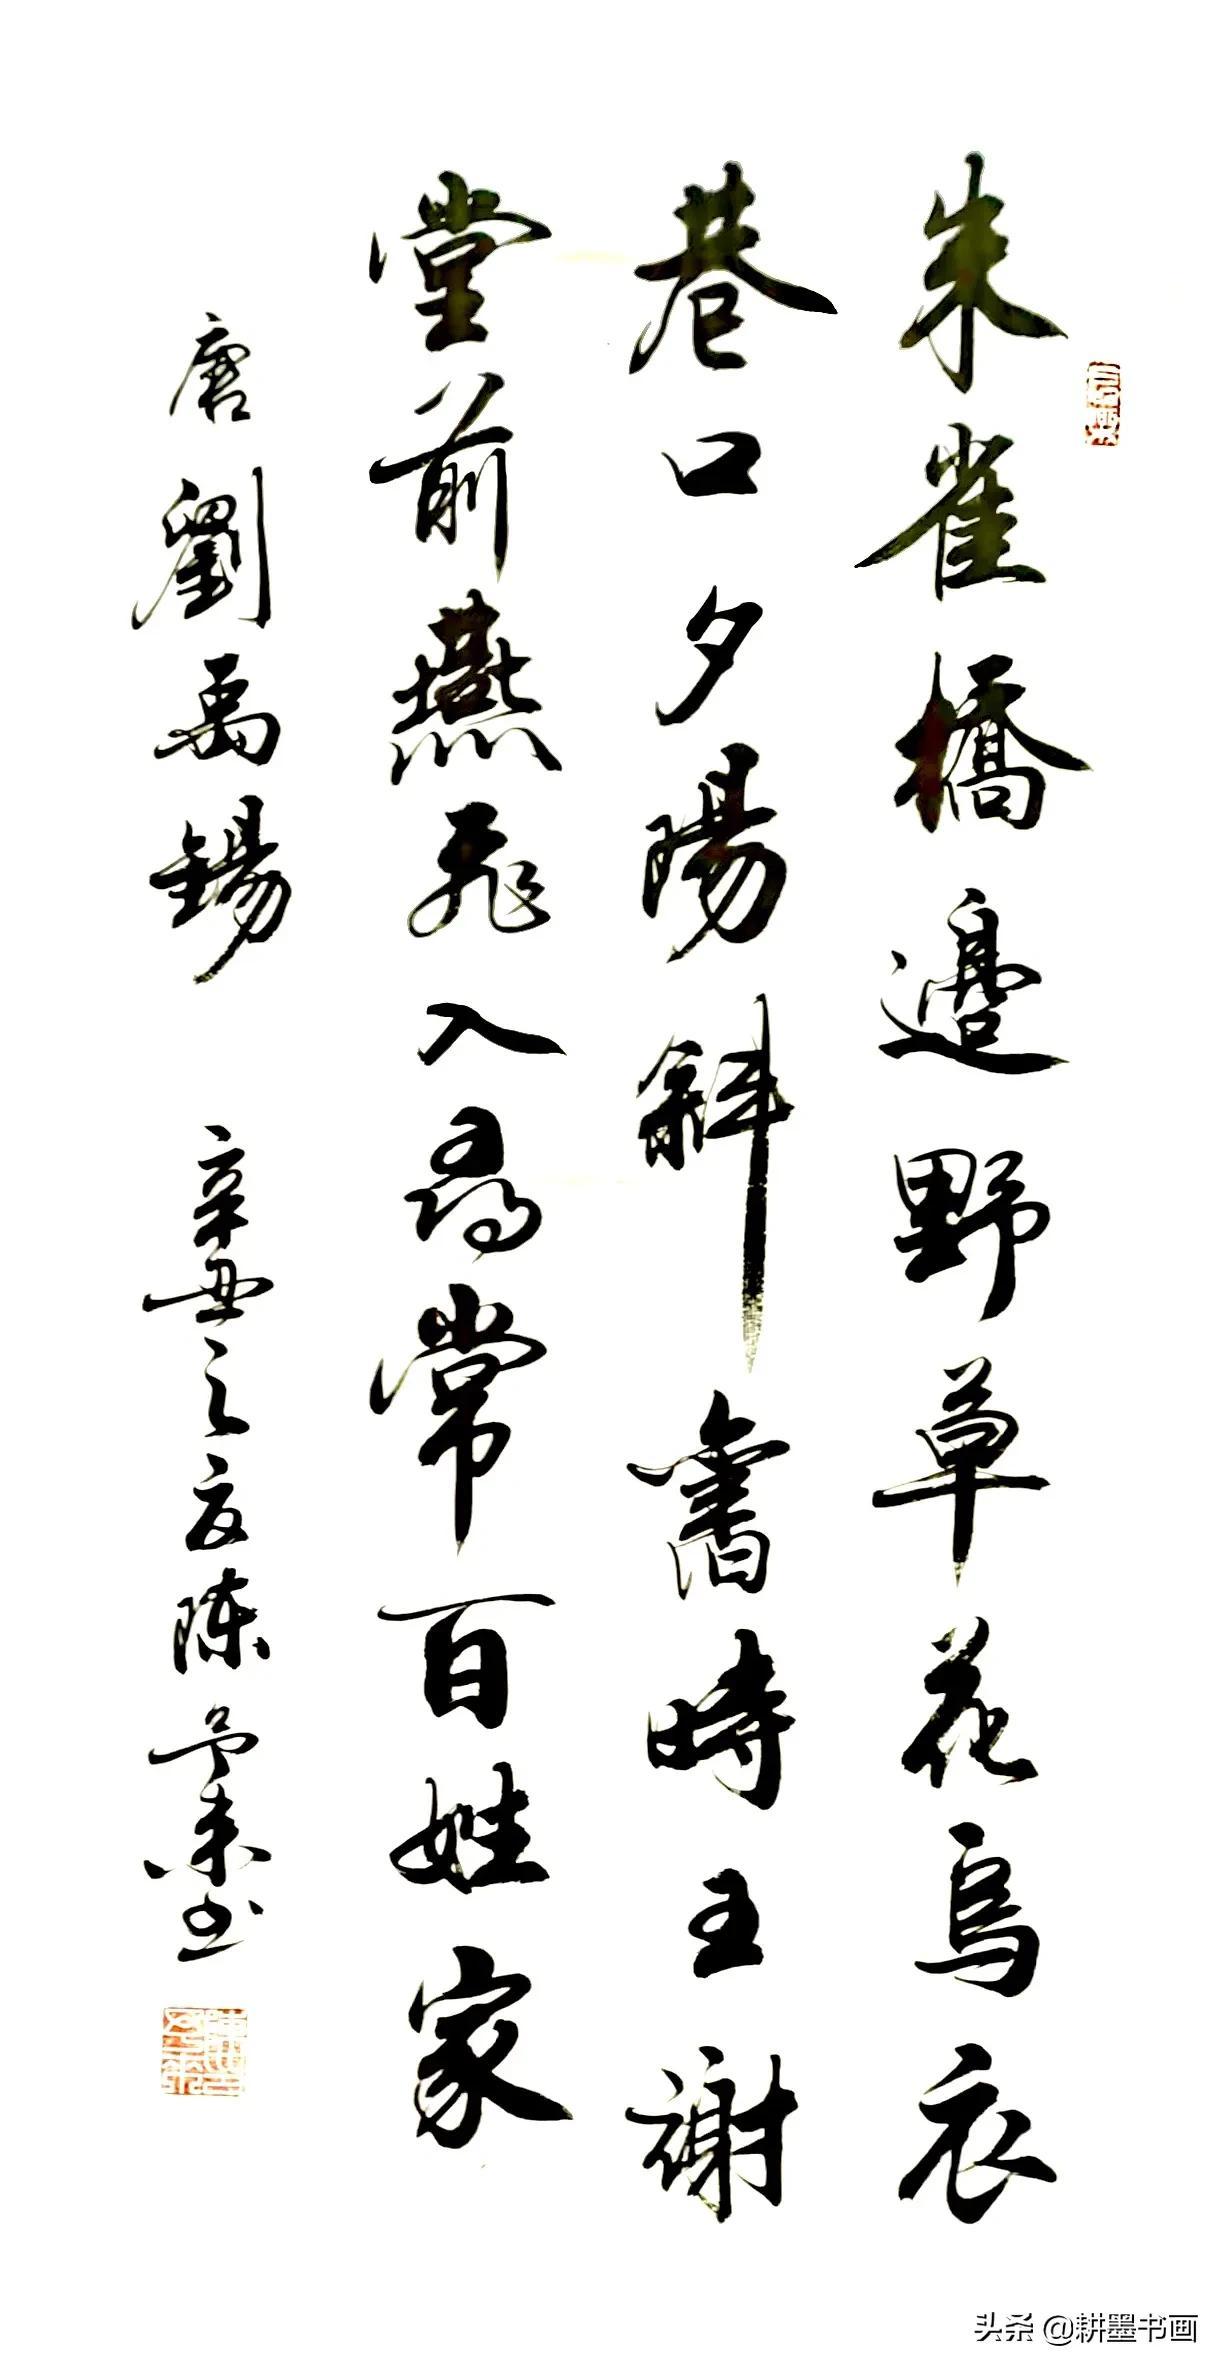 朱雀橋邊野草花烏衣
巷口夕陽斜舊時王謝
堂前燕飛入尋常百姓家
唐劉禹錫 辛丑之夏陳书
头条 @耕墨书画